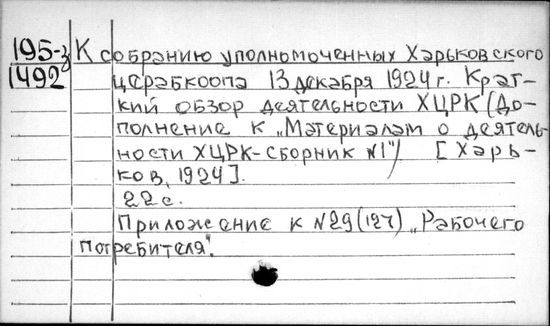 195-3 К собранию уполномоченных Харьковского
1492 церабкоопа 13 декабря 1924 г. Крат-
кий обзор деятельности ХЦРК (До-
полнение к „Материалам о деятель-
ности ХЦРК-сборник №1") [Харь-
ков, 1924].
22 с.
Приложение к №29 (127) „Рабочего
потребителя".